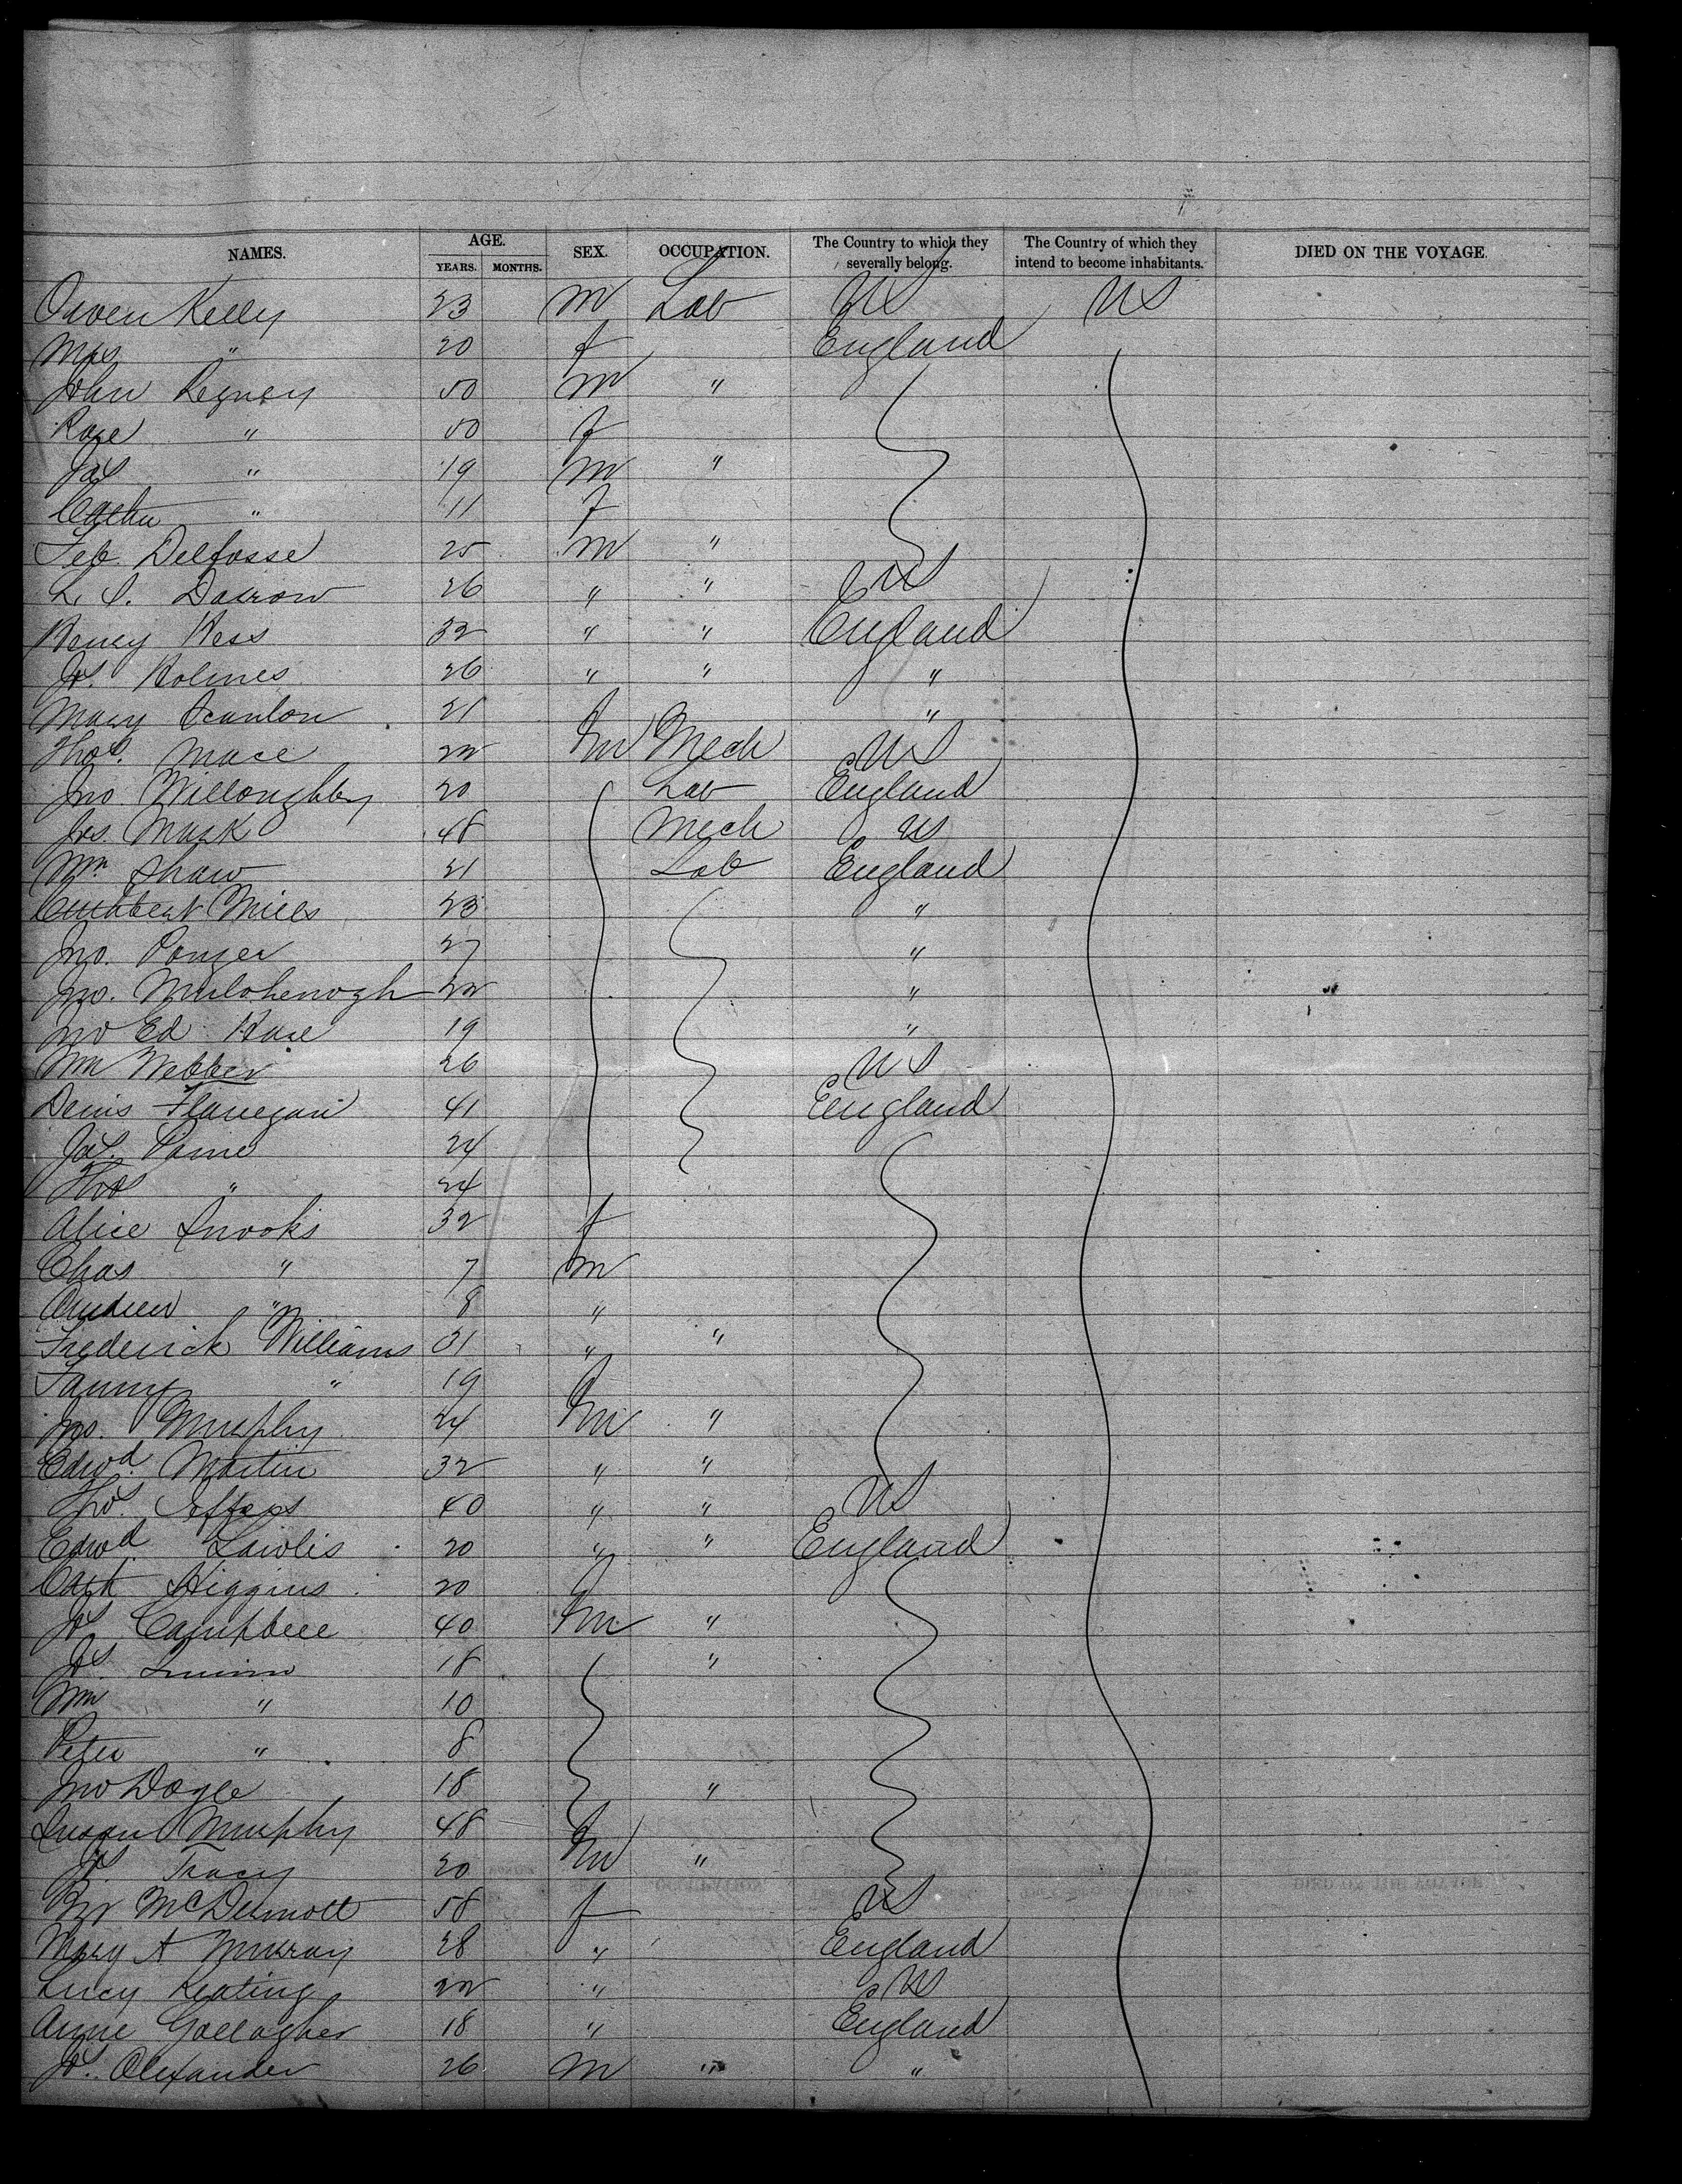 NAMES. AGE. SEX. OCCUPATION. The Country to which they severally belong. The Country of which they intend to become inhabitants. DIED ON THE VOYAGE.
YEARS. MONTHS.
Owen Kelly 23 m Lab US US
Mrs " 20 f England
John Regney 50 m "
Rose " 50 f
Jas " 19 m "
Cathe " 11 f
Delfosse 25 m "
L. S. Darrow 26 " " US
Henry Hess 32 " " England
Js. Holmes 26 " " "
Mary Scanlon 21 f "
Thos. Mace 22 m Mech US
Jno Willoughby 20 Lab England
Jas. Mark 48 Mech US
Wm Shaw 21 Lab England
Cuthbert Mills 23 "
Jno. Ponger 27 "
Jno. 22 "
Jno Ed 19 "
Wm Webber 26 US
Denis Flanegan 41 England
Jas. Paine 24
Thos " 24
Alice Snooks 32 f
Chas " 7 m
Andrew " 8 "
Frederick Williams 31 " "
Fanny " 19 f
Jno. Murphy 24 m "
Edwd. Martin 32 " "
Thos. Jeffers 40 " " US
Edwd. Lawlis 20 " " England
Cath Higgins 20 f
Js Campbell 40 m "
Js. Quinn 18 "
Wm " 10
Peter " 8
Jno Doyle 18 "
Susan Murphy 48 f
Js. Tracy 20 m "
McDermott 58 f US
Mary A Murray 28 " England
Lucy Keating 22 " US
Anne Gallagher 18 " England
Js. Alexander 26 m " "